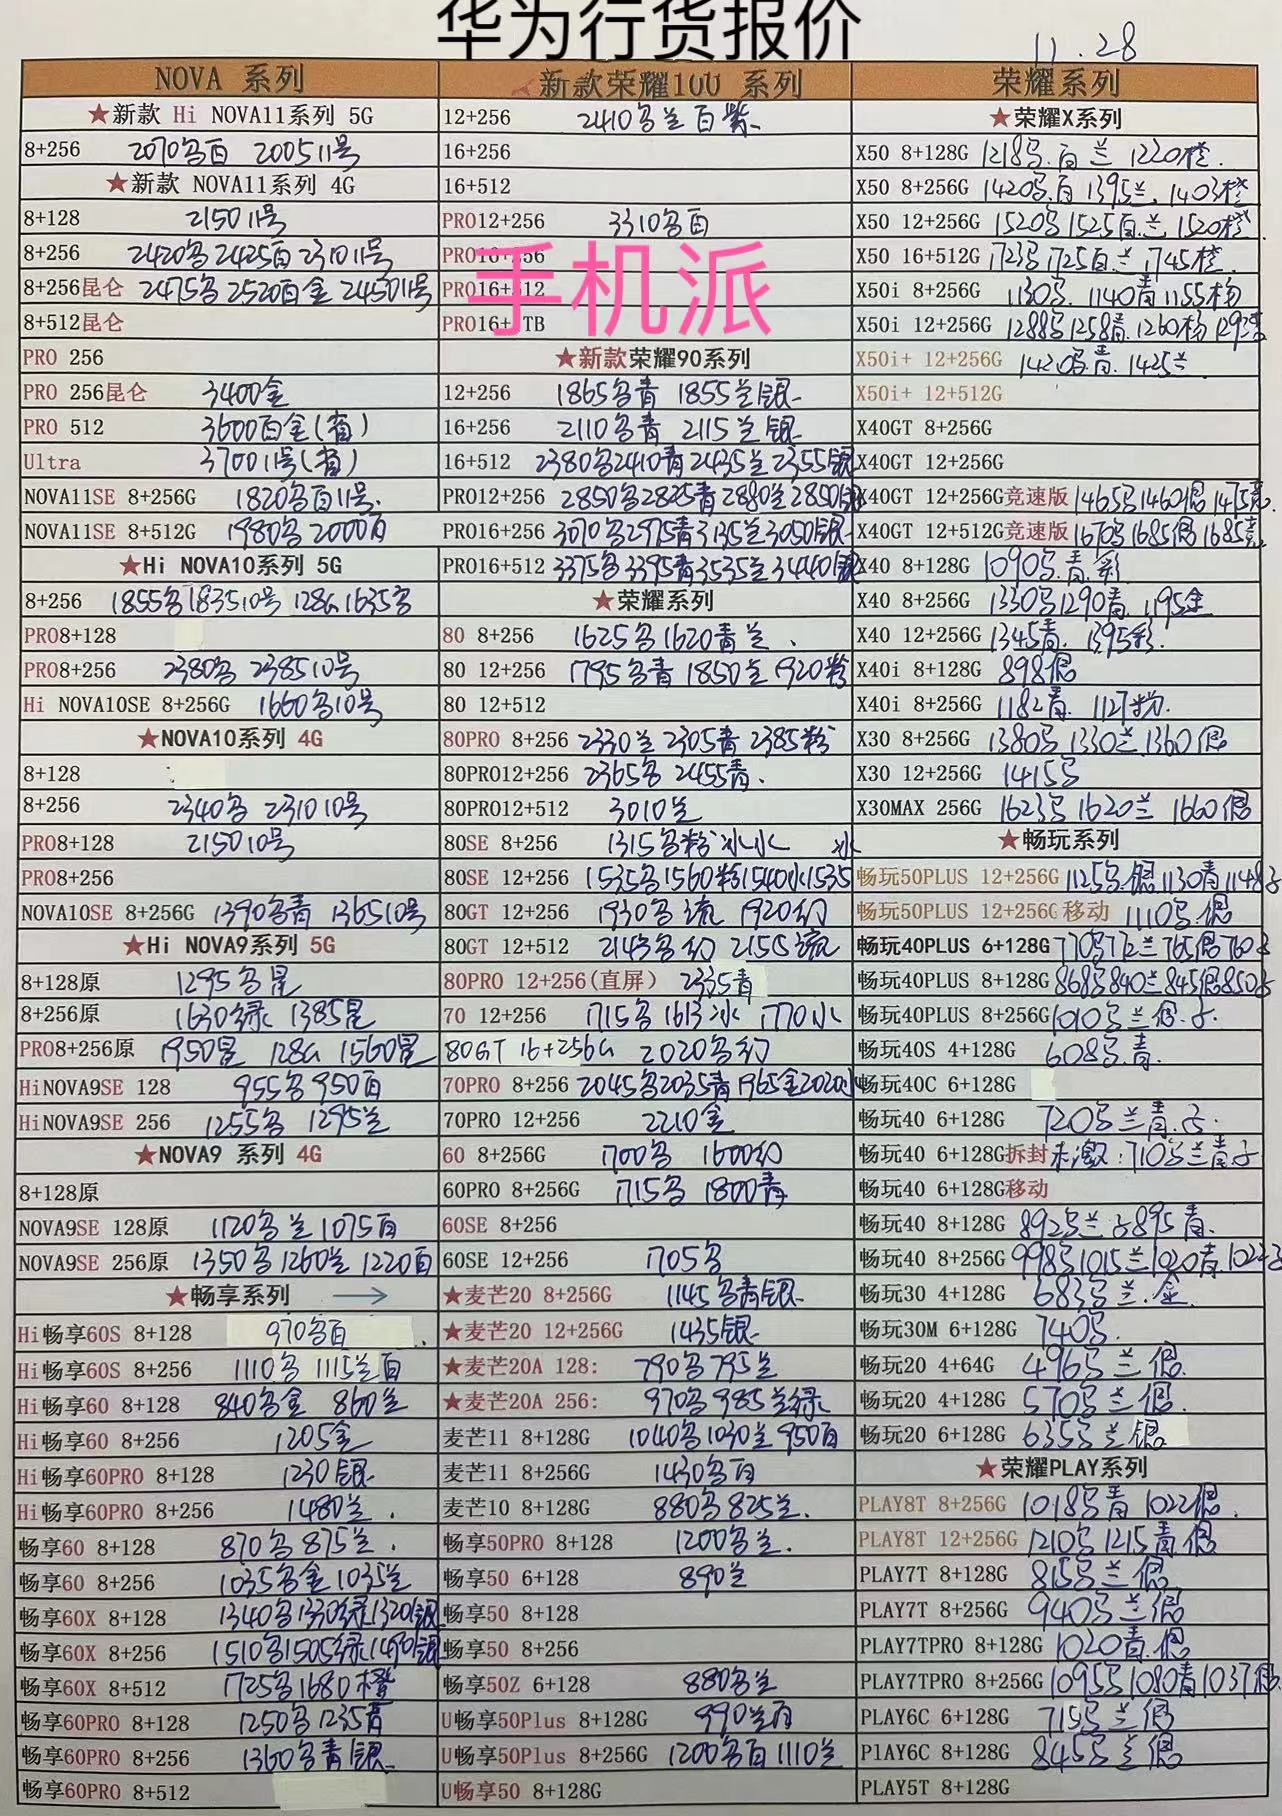 华为行货报价
11.28
NOVA 系列
★新款 Hi NOVA11系列 5G
8+256 2070名百 2005 11号
★新款 NOVA11系列 4G
8+128 2150 11号
8+256 2420名 2425百 2310 11号
8+256昆仑 2475名 2520百金 2450 11号
8+512昆仑
PRO 256
PRO 256昆仑 3400金
PRO 512 3600百金(省)
Ultra 3700 11号(省)
NOVA11SE 8+256G 1820名百11号.
NOVA11SE 8+512G 1980名 2000百
★Hi NOVA10系列 5G
8+256 1855名 1835 10号 128G 1635名
PRO8+128
PRO8+256 2380名 2385 10号
Hi NOVA10SE 8+256G 1660名10号
★NOVA10系列 4G
8+128
8+256 2340名 2310 10号
PRO8+128 2150 10号
PRO8+256
NOVA10SE 8+256G 1390名青 1365 10号
★Hi NOVA9系列 5G
8+128原 1295名星
8+256原 1630绿 1385星
PRO8+256原 1950星 128G 1560星
HiNOVA9SE 128 955名 950百
HiNOVA9SE 256 1255名 1295兰
★NOVA9 系列 4G
8+128原
NOVA9SE 128原 1120名兰 1075百
NOVA9SE 256原 1350名 1260兰 1220百
★畅享系列 →
Hi畅享60S 8+128 970名百
Hi畅享60S 8+256 1110名 1115兰百
Hi畅享60 8+128 840名金 860兰
Hi畅享60 8+256 1205金
Hi畅享60PRO 8+128 1230银
Hi畅享60PRO 8+256 1480兰.
畅享60 8+128 870名 875兰.
畅享60 8+256 1035名金 1035兰
畅享60X 8+128 1340名1330绿1320银
畅享60X 8+256 1510名1505绿1490银
畅享60X 8+512 1725名1680橙
畅享60PRO 8+128 1250名1235青
畅享60PRO 8+256 1360名青银
畅享60PRO 8+512
新款荣耀100 系列
12+256 2410名兰百紫
16+256
16+512
PRO12+256 3310名百
PRO16+256
手机派
PRO16+512
PRO16+1TB
★新款荣耀90系列
12+256 1865名青 1855兰银
16+256 2110名青 2115兰银
16+512 2380名2410青2435兰2355银
PRO12+256 2850名2825青2880兰2850银
PRO16+256 3070名2975青3135兰3050银
PRO16+512 3375名3395青3535兰3440银
★荣耀系列
80 8+256 1625名 1620青兰.
80 12+256 1795名青 1850兰 1920粉
80 12+512
80PRO 8+256 2330兰 2305青 2385粉
80PRO12+256 2365名 2455青.
80PRO12+512 3010兰
80SE 8+256 1315名粉冰水 冰
80SE 12+256 1535名1560粉1540水1535
80GT 12+256 1930名流 1920幻
80GT 12+512 2143名幻 2155流
80PRO 12+256(直屏) 2335青
70 12+256 1715名 1613冰 1770水
80GT 16+256G 2020名幻
70PRO 8+256 2045名2035青1965金2020水
70PRO 12+256 2210金
60 8+256G 1700名 1600幻
60PRO 8+256G 1715名 1800青
60SE 8+256
60SE 12+256 1705名
★麦芒20 8+256G 1145名青银
★麦芒20 12+256G 1435银
★麦芒20A 128: 790名795兰
★麦芒20A 256: 970名985兰绿
麦芒11 8+128G 1040名1030兰950百
麦芒11 8+256G 1430名百
麦芒10 8+128G 880名825兰.
畅享50PRO 8+128 1200名兰.
畅享50 6+128 890兰
畅享50 8+128
畅享50 8+256
畅享50Z 6+128 880名兰
U畅享50Plus 8+128G 990兰百
U畅享50Plus 8+256G 1200名百1110兰
U畅享50 8+128G
荣耀系列
★荣耀X系列
X50 8+128G 1218名.百兰 1220橙.
X50 8+256G 1420名.百 1395兰. 1403橙
X50 12+256G 1520名1525百.兰.1520橙
X50 16+512G 1723名1725百兰1745橙.
X50i 8+256G 1130名. 1140青1155杨
X50i 12+256G 1288名1258青.1260杨
X50i+ 12+256G 1420名青. 1425兰
X50i+ 12+512G
X40GT 8+256G
X40GT 12+256G
X40GT 12+256G竞速版 1465名1460银1475竞.
X40GT 12+512G竞速版 1670名1685银1685竞
X40 8+128G 1090名.青.彩
X40 8+256G 1330名1290青.1195金
X40 12+256G 1345青. 1395彩.
X40i 8+128G 898银
X40i 8+256G 1182青. 1127粉.
X30 8+256G 1380名1330兰1360银
X30 12+256G 1415名
X30MAX 256G 1623名1620兰 1660银
★畅玩系列
畅玩50PLUS 12+256G 1125名.银1130青1148子
畅玩50PLUS 12+256G 移动 1110名.银
畅玩40PLUS 6+128G 770名772兰765银760子
畅玩40PLUS 8+128G 868名840兰845银850子
畅玩40PLUS 8+256G 1010名兰银.子.
畅玩40S 4+128G 608名.青.
畅玩40C 6+128G
畅玩40 6+128G 720名兰青.子.
畅玩40 6+128G拆封 未激:710名兰青子
畅玩40 6+128G移动
畅玩40 8+128G 892名兰子895青.
畅玩40 8+256G 998名1015兰1020青.1024子
畅玩30 4+128G 683名兰.金.
畅玩30M 6+128G 740名.
畅玩20 4+64G 496名兰银.
畅玩20 4+128G 570名兰银.
畅玩20 6+128G 635名兰银
★荣耀PLAY系列
PLAY8T 8+256G 1018名青 1022银.
PLAY8T 12+256G 1210名1215青.银
PLAY7T 8+128G 815名兰银
PLAY7T 8+256G 940名兰银
PLAY7TPRO 8+128G 1020青.银
PLAY7TPRO 8+256G 1095名1080青1037银.
PLAY6C 6+128G 715名兰银
PlAY6C 8+128G 845名兰银
PLAY5T 8+128G